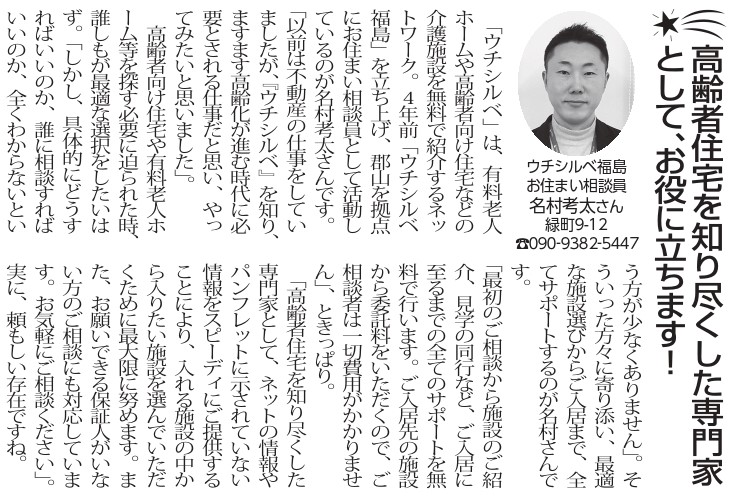 高齢者住宅を知り尽くした専門家
として、お役に立ちます！
ウチシルベ福島
お住まい相談員
名村考太さん
緑町9-12
☎090-9382-5447
「ウチシルベ」は、有料老人
ホームや高齢者向け住宅などの
介護施設を無料で紹介するネッ
トワーク。４年前「ウチシルベ
福島」を立ち上げ、郡山を拠点
にお住まい相談員として活動し
ているのが名村考太さんです。
「以前は不動産の仕事をしてい
ましたが、『ウチシルベ』を知り、
ますます高齢化が進む時代に必
要とされる仕事だと思い、やっ
てみたいと思いました」。
高齢者向け住宅や有料老人ホ
ーム等を探す必要に迫られた時、
誰しもが最適な選択をしたいは
ず。「しかし、具体的にどうす
ればいいのか、誰に相談すれば
いいのか、全くわからないとい
う方が少なくありません」。そ
ういった方々に寄り添い、最適
な施設選びからご入居まで、全
てサポートするのが名村さんで
す。
「最初のご相談から施設のご紹
介、見学の同行など、ご入居に
至るまでの全てのサポートを無
料で行います。ご入居先の施設
から委託料をいただくので、ご
相談者は一切費用がかかりませ
ん」、ときっぱり。
「高齢者住宅を知り尽くした
専門家として、ネットの情報や
パンフレットに示されていない
情報をスピーディにご提供する
ことにより、入れる施設の中か
ら入りたい施設を選んでいただ
くために最大限に努めます。ま
た、お願いできる保証人がいな
い方のご相談にも対応していま
す。お気軽にご相談ください」。
実に、頼もしい存在ですね。